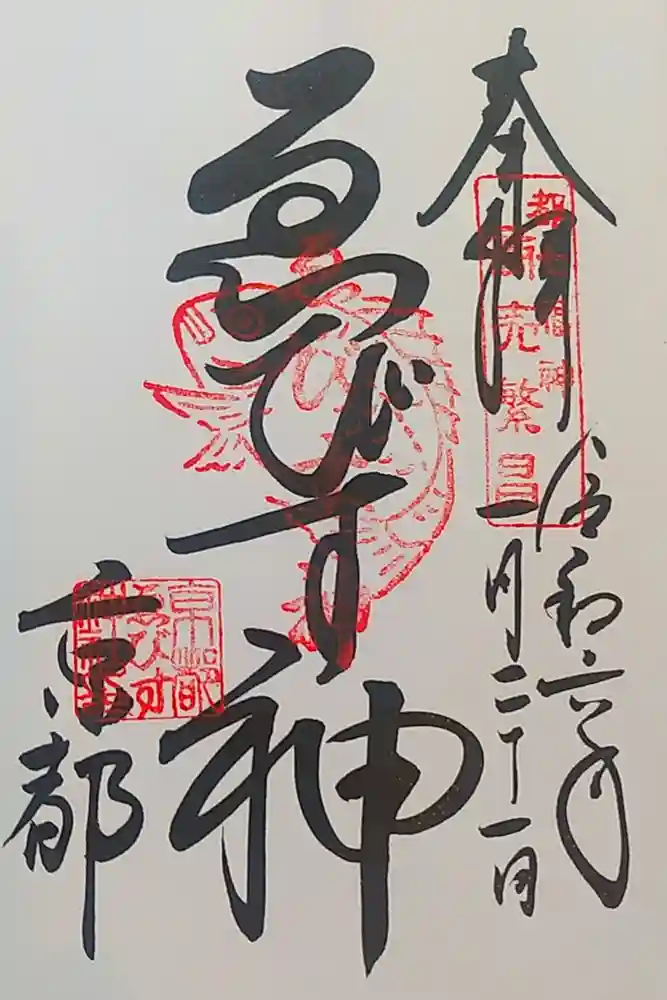 奉拝
都七福神
商売繁昌
令和六年
一月二十一日
ゑびす神
京都
京都
ゑびす
神社